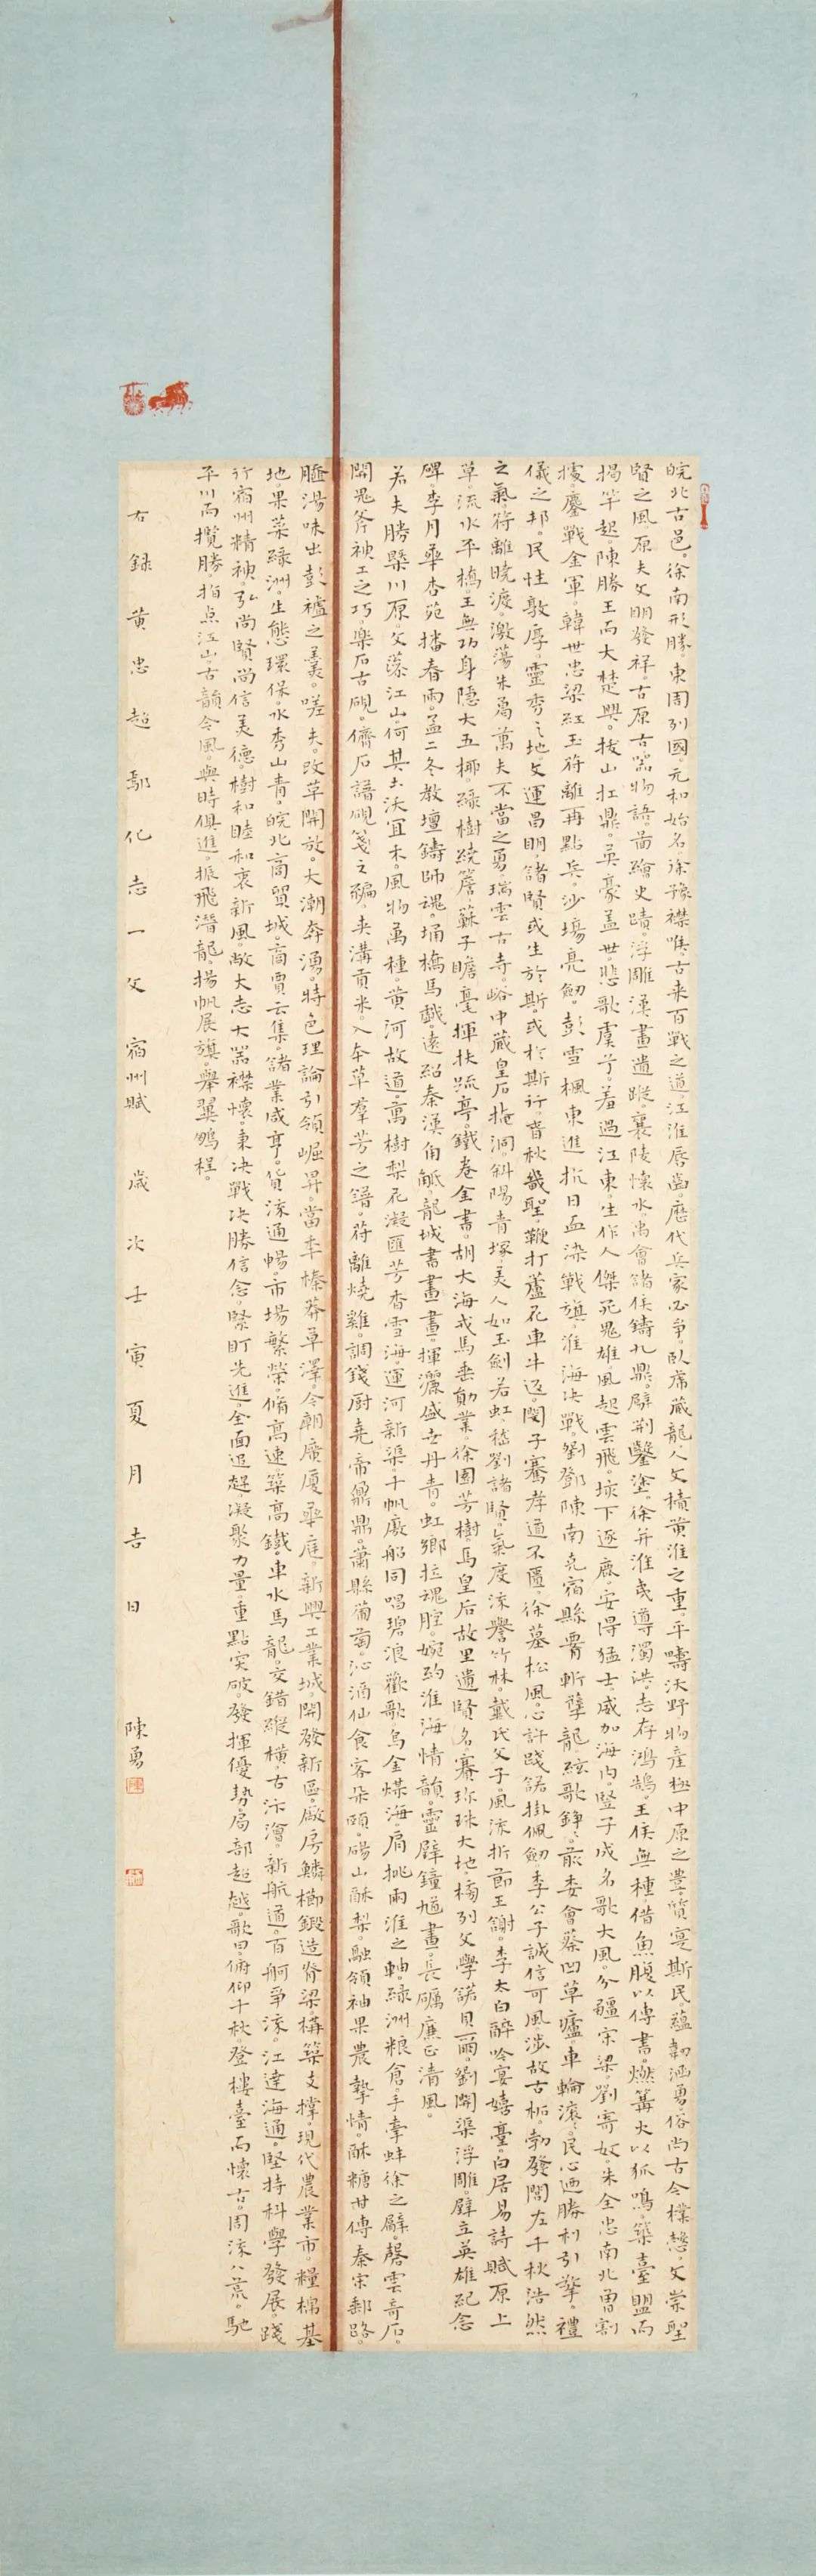 皖北古邑。徐南形勝。東周列國。元和始名。徐豫襟喉。古来百戰之道。江淮唇齒。歷代兵家必争。卧虎蔵龍。人文積黄淮之重。平疇沃野。物産極中原之豊。質寔斯民。蘊韌涵勇。俗尚古今樸慤。文崇聖
賢之風。原夫文明發祥。古原古器物語。畨繪史蹟。浮雕漢畫遺蹤。襄陵懷水。禹會諸侯鑄九鼎。闢荆鑿塗。徐并淮夷導濁洪。志存鸿鵠。王侯無種。借魚腹以傳書。燃篝火以狐鳴。築臺盟而
揭竿起。陳勝王而大楚興。拔山扛鼎。英豪盖世。悲歌虞兮。羞過江東。生作人傑死鬼雄。風起雲飛。垓下逐鹿。安得猛士。威加海内。豎子成名歌大風。分疆宋梁。劉寄奴。朱全忠南北曾割
據。鏖戰金軍。韓世忠梁紅玉符離再點兵。沙場亮劍。彭雪楓東進抗日血染戰旗。淮海决戰劉鄧陳南克宿縣霄斬孽龍。絃歌錚錚。前委會蔡凹草廬。車輪滚滚。民心迺勝利引擎。禮
儀之邦。民性敦厚。靈秀之地。文運昌明。諸賢或生於斯。或於斯行。春秋幾聖。鞭打蘆花車斗返。閔子騫孝道不匱。徐墓松風。心許踐諾掛佩劍。季公子誠信可風。涉故古柘。勃發閭左千秋浩然
之氣。符離曉渡。激蕩朱鬲萬夫不當之勇。瑞雲古寺。峪中蔵皇石掩洞。斜陽青塚。美人如玉劍若虹。嵇劉諸賢。氣度流譽竹林。戴氏父子。風流折節王謝。李太白醉吟宴嬉臺。白居易詩賦原上
草。流水平橋。王無功身隱大五柳。緑樹繞簷。蘇子瞻毫揮扶疏亭。鐵卷金書。胡大海戎馬垂勛業。徐園芳樹。馬皇后故里遺賢名。賽珍珠大地。橋列文學諾貝爾。劉開渠浮雕。壁立英雄紀念
碑。李月華杏苑播春雨。孟二冬教壇鑄師魂。埇橋馬戲。遠紹秦漢角觝。龍城書畫畫。揮灑盛世丹青。虹鄉拉魂腔。婉約淮海情韻。靈壁鐘馗畫。長矚廉正清風。
若夫勝槩川原。文藻江山。何其土沃宜禾。風物萬種。黄河故道。萬樹梨花凝匯芳香雪海。運河新渠。千帆廠船同唱碧浪歡歌。烏金煤海。肩挑兩淮之軸。緑洲粮倉。手牽蚌徐之臂。磬雲奇石。
開鬼斧神工之巧。樂石古硯。儕石譜硯箋之編。夹溝貢米。入本草羣芳之譜。符離燒雞。調錢厨堯帝鼐鼎。蕭縣葡萄。沁酒仙食客朵頤。碭山酥梨。融領袖果農摯情。酥糖甘傳秦宋郵路。
䐺湯味出彭墟之羹。嗟夫。改草開放。大潮奔湧。特色理論引領崛昇。當年榛莽草澤。今朝廣厦華庭。新興工業城。開發新區。廠房鱗櫛鍛造脊梁。構築支撑。現代農業市。糧棉基
地。果菜緑洲。生態環保。水秀山青。皖北商貿城。商賈云集。諸業咸亨。貨流通暢。市場繁榮。脩高速築高鐵。車水馬龍。交錯縱横。古汴澮。新航通。百舸爭流。江達海通。堅持科學發展。踐
行宿州精神。弘尚賢尚信美德。樹和睦和衷新風。敞大志大器襟懷。秉决戰决勝信念。緊盯先進。全面追趕。凝聚力量。重點突破。發揮優勢。局部超越。歌曰。俯仰千秋。登樓臺而懷古。周流八荒。馳
平川而攬勝。指点江山。古韻今風。與時俱進。振飛潛龍。揚帆展旗。舉翼鵬程。
右録黄忠超鄢化志一文宿州賦歲次壬寅夏月吉日 陳勇